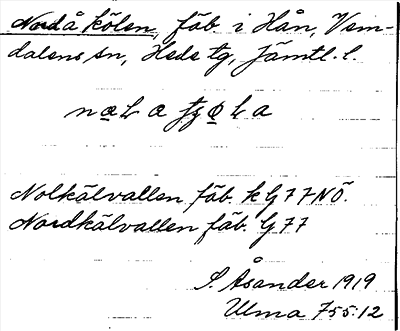 Nordåkölen, fäb. i Hån, Vem-
dalens sn, Hede tg, Jämtl. l.
Nolkälvallen fäb. k G 77 NÖ.
Nordkälvallen fäb. G 77
S. Åsander 1919
Ulma 755:12